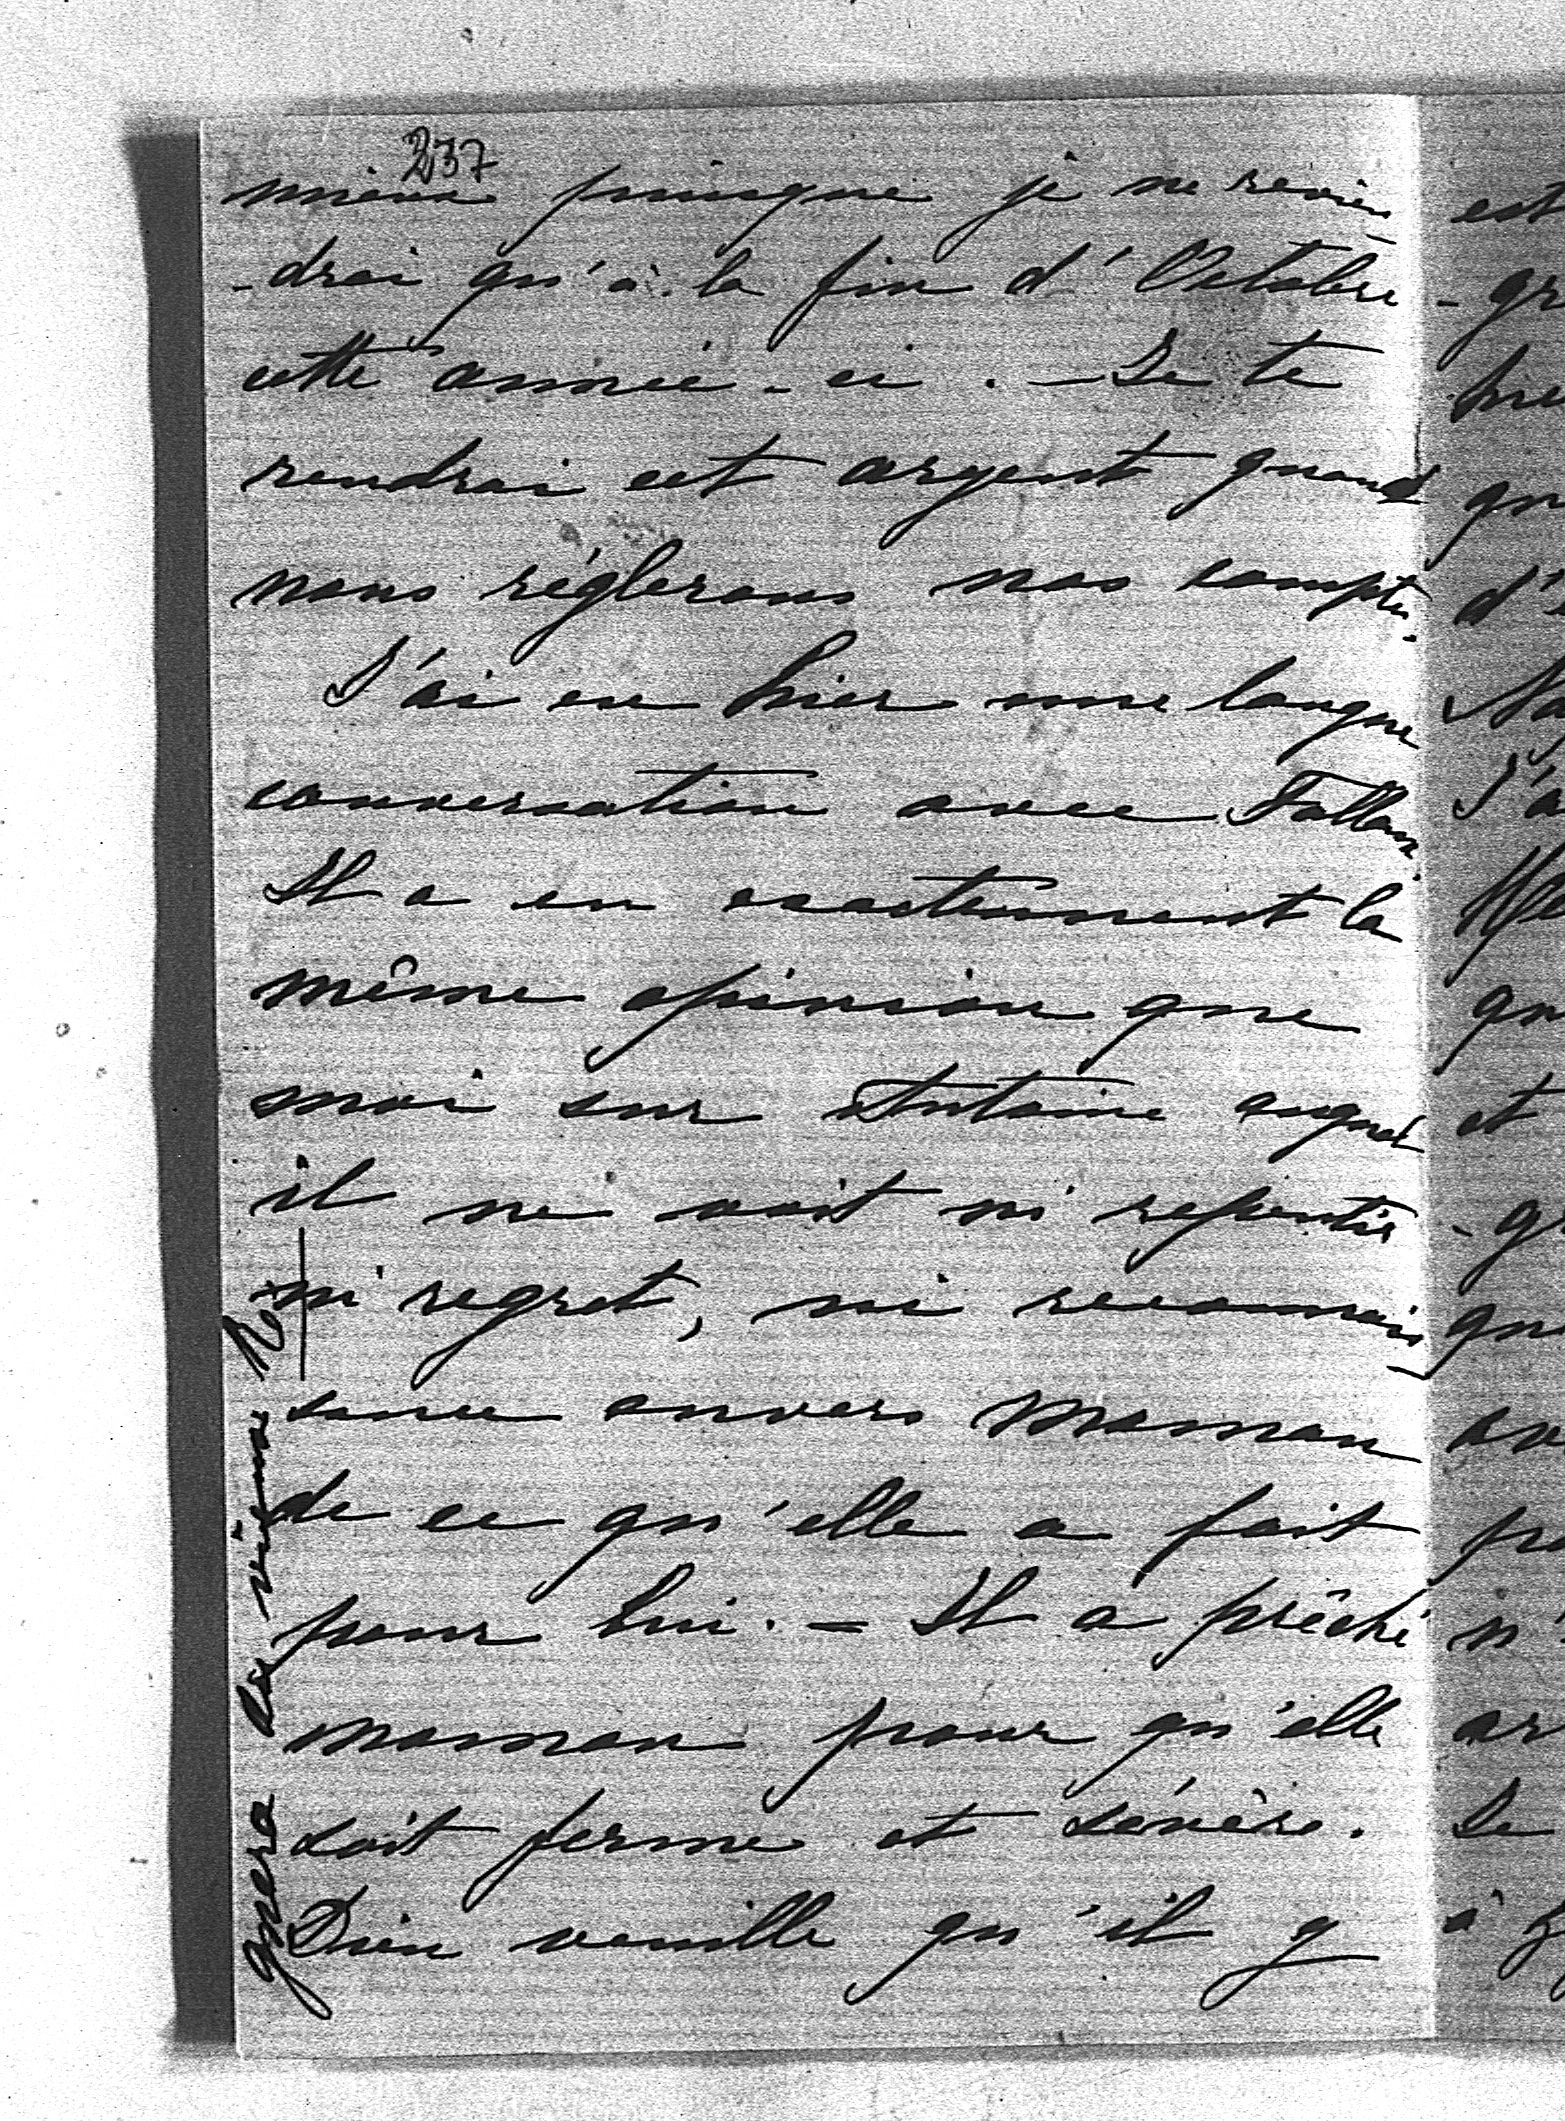 237
mienne puisque je ne revien
-drai qu'à la fin d'Octobre
cette année-ci. — Je te
rendrai cet argent quand
nous règlerons nos comptes.
J'ai eu hier une longue
conversation avec
Il a eu exactement la
même opinion que
moi sur Antoine auquel
il ne voit ni repentir
ni regret, ni reconnais-
sance envers Maman
de ce qu'elle a fait
pour lui. = Il a prêché
maman pour qu'elle
soit ferme et sévère.
Dieu veuille qu'il y